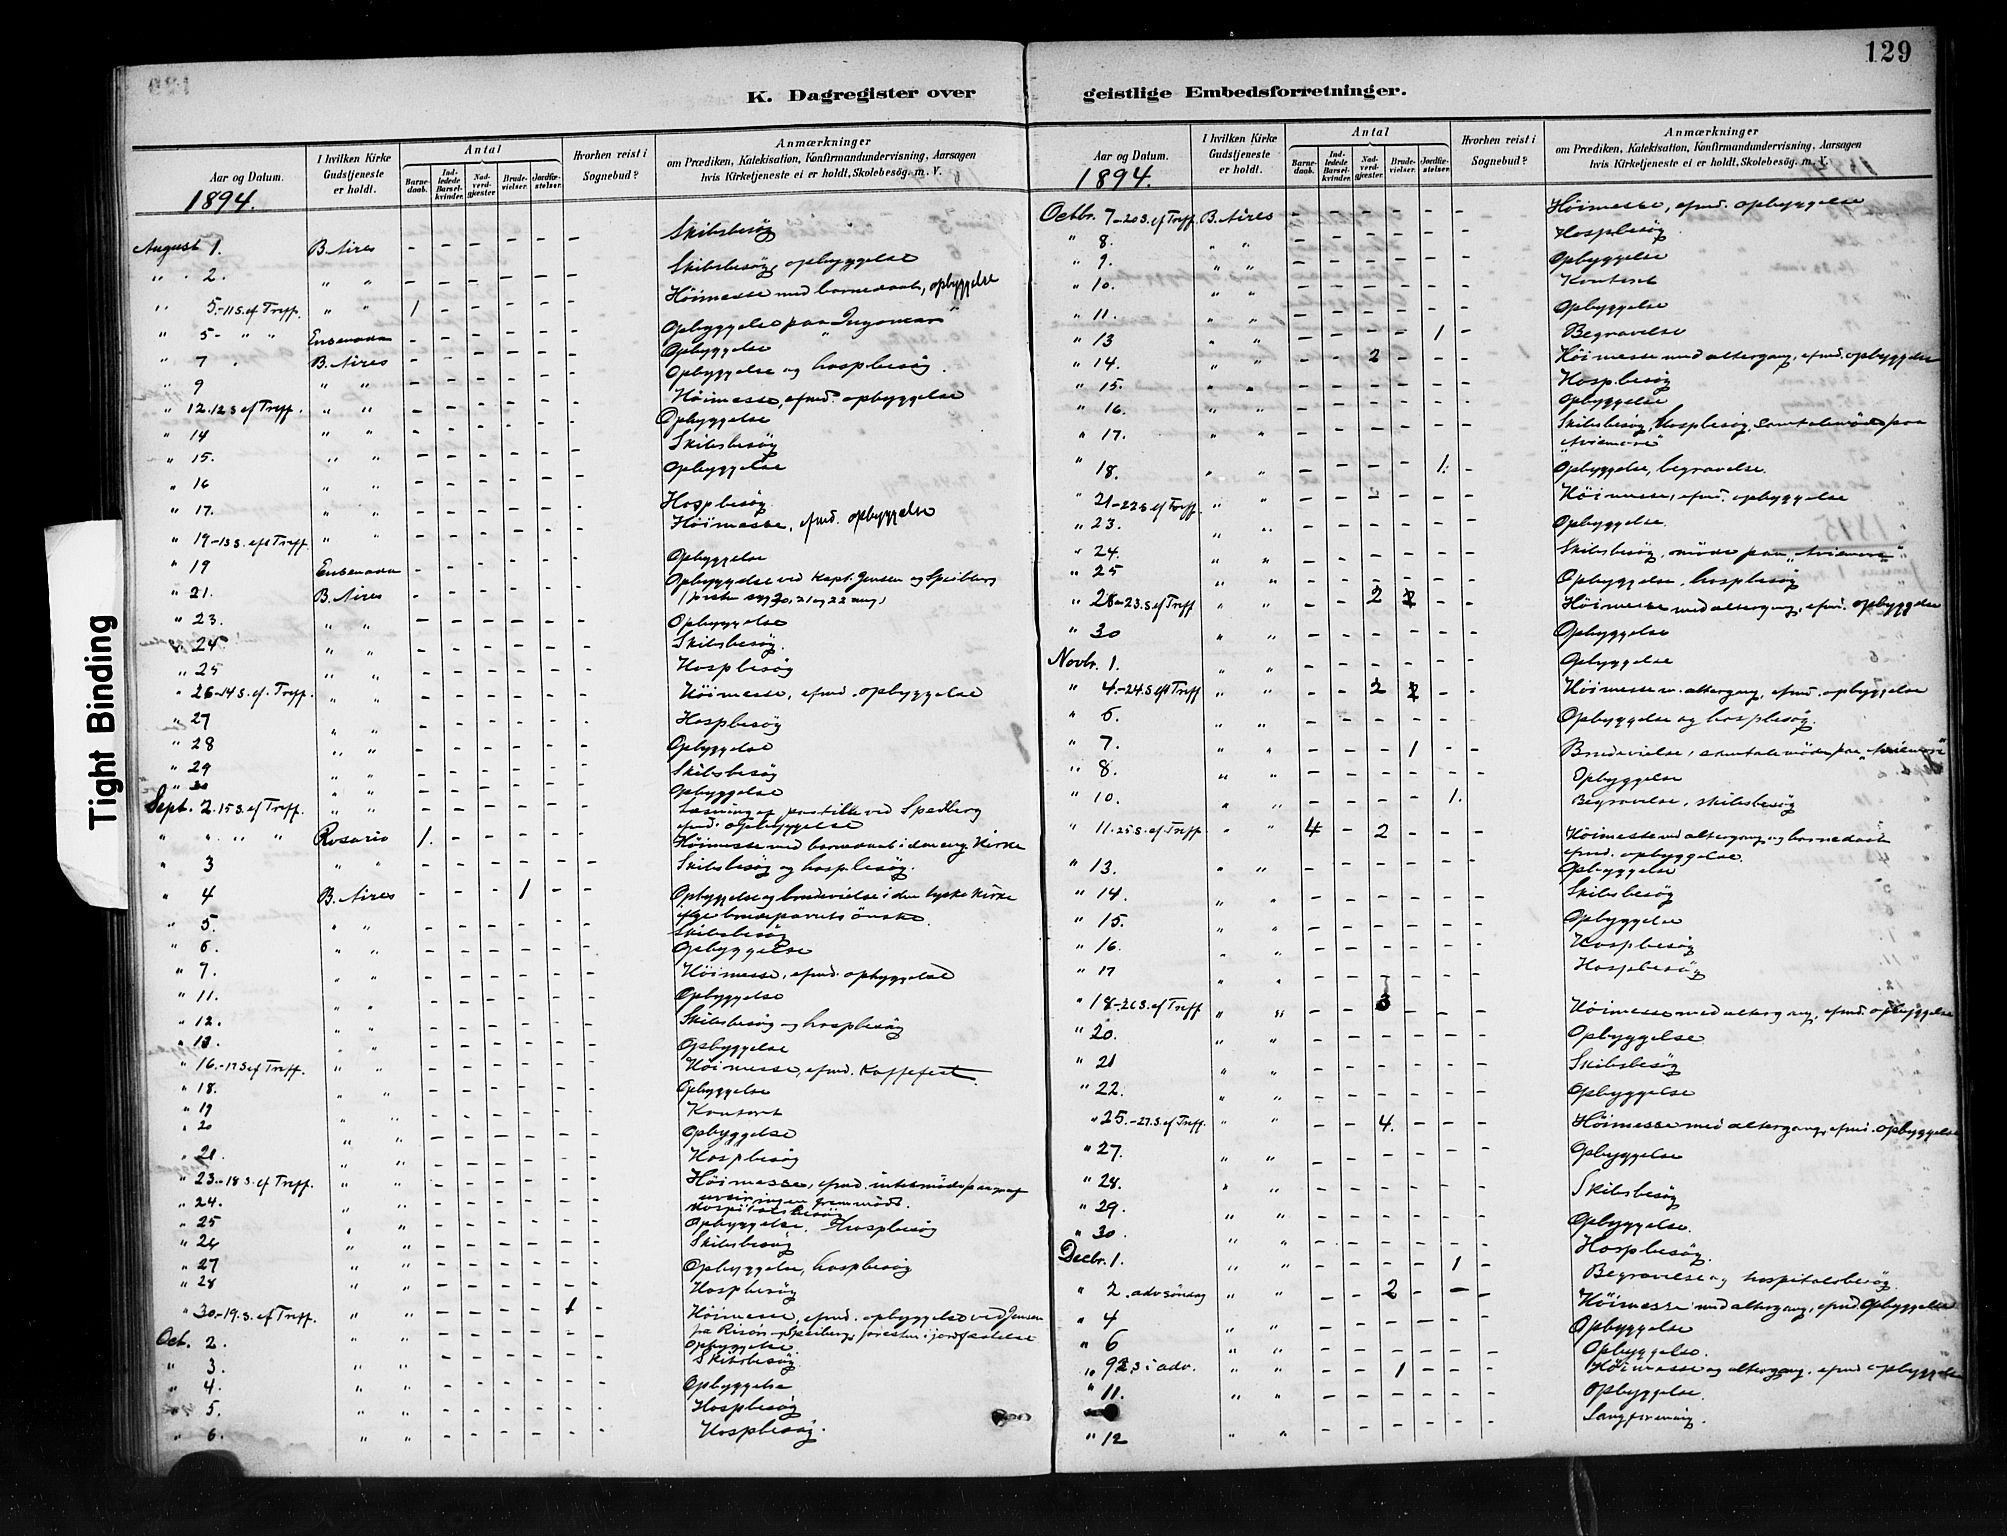 129
K. Dagregister over geistlige Embedsforretninger.
Aar og Datum.
I hvilken Kirke Gudstjeneste er holdt.
Antal
Barne-daab.
Ind-ledede Barsel-kvinder.
Nad-verd-gjester
Brude-vielser.
Jordfæ-stelser.
Hvorhen reist i Sognebud?
Anmærkninger
om Prædiken, Katekisation, Konfirmandundervisning, Aarsagen
hvis Kirketjeneste ei er holdt, Skolebesøg. m. V.
1894.
August 1. B. Aires - - - - - - Skibsbesøg
" 2. " " - - - - - - Skibsbesøg, opbyggelse
" 5.-11 S. ef Treff. " " 1 - - - - Höimesse med barnedaab, opbyggelse
" 5- " " Ensenada - - - - - - Opbyggelse paa "Ingomar"
" 7 B. Aires - - - - - - Opbyggelse
" 9 " " - - - - - - Opbyggelse og hospbesøg.
" 12. 12 S ef Treff. " " - - - - - - Höimesse, efmd. opbyggelse
" 14 " " - - - - - - Opbyggelse
" 15. " " - - - - - - Skibsbesøg
" 16 " " - - - - - - Opbyggelse
" 17. " " - - - - - - Hospbesøg
" 19-13 S. eft Treff. " " - - - - - - Höimesse, efmd. opbyggelse
" 19 Ensenada - - - - - - Opbyggelse
" 21. B. Aires - - - - - - Opbyggelse ved Kapt. Jensen og Speiberg
(presten syg 20, 21 og 22 aug)
" 23. " " - - - - - - Opbyggelse
" 24 " " - - - - - - Skibsbesøg.
" 25 " " - - - - - - Hospbesøg
" 26-14 S. ef. Treff. " " - - - - - - Höimesse, efmd. opbyggelse
" 27 " " - - - - - - Hospbesøg
" 28 " " - - - - - - Opbyggelse
" 29 " " - - - - - - Skibsbesøg
" 30 " " - - - - - - Opbyggelse
Sept. 2. 15 S. ef Treff. " " - - - - - - Læsning af postille ved Speiberg
efmd. opbyggelse
" " " " Rosario 1. - - - - Höimesse med barnedaab i den eng. Kirke
" 3 " " - - - - - - Skibsbesøg og hospbesøg.
" 4 B. Aires - - - 1 - - Opbyggelse og brudevielse i den tyske Kirke
efter brudeparrets önske.
" 5. " " - - - - - - Skibsbesøg
" 6. " " - - - - - - Opbyggelse
" 7. " " - - - - - - Höimesse, efmd. opbyggelse
" 11. " " - - - - - - Opbyggelse
" 12. " " - - - - - - Skibsbesøg og hospbesøg
" 13. " " - - - - - - Opbyggelse
" 16.-17 S ef Treff. " " - - - - - - Höimesse, efmd. Kaffefest
" 18. " " - - - - - - Opbyggelse
" 19 " " - - - - - - Kontoret
" 20 " " - - - - - - Opbyggelse
" 21. " " - - - - - - Hospbesøg
" 23.-18 S. ef Treff. " " - - - - - - Höimesse, efmd.
" 24. " " - - - - - - Hospitalsbesøg
" 25 " " - - - - - - Opbyggelse. Hospbesøg
" 26 " " - - - - - - Skibsbesøg
" 27 " " - - - - - - Opbyggelse, hospbesøg
" 28 " " - - - - - - Hospbesøg
" 30-19. S. ef Treff. " " - - - - 1 - Höimesse, efmd. opbyggelse ved Jensen
fra Risör og Speiberg, presten i jordfæstelse
Oct. 2. " " - - - - - - Opbyggelse
" 3. " " - - - - - - Skibsbesøg
" 4. " " - - - - - - Opbyggelse
" 5. " " - - - - - - Hospbesøg
" 6. " " - - - - - - Hospbesøg.
Aar og Datum.
I hvilken Kirke Gudstjeneste er holdt.
Antal
Barne-daab.
Ind-ledede Barsel-kvinder.
Nad-verd-gjæster.
Brude-vielser.
Jordfæ-stelser.
Hvorhen reist i Sognebud?
Anmærkninger
om Prædiken, Katekisation, Konfirmandundervisning, Aarsagen
hvis Kirketjeneste ei er holdt, Skolebesøg. m. V.
1894.
Octbr. 7-20 S. ef Treff. B. Aires - - - - - - Höimesse, efmd. opbyggelse
" 8. " " - - - - - - Hospbesøg.
" 9. " " - - - - - - Opbyggelse
" 10. " " - - - - - - Kontoret
" 11. " " - - - - - - Opbyggelse
" 13 " " - - - - 1 - Begravelse
" 14. " " - - 2 - - - Höimesse med altergang, efmd. opbyggelse
" 15. " " - - - - - - Hospbesøg
" 16. " " - - - - - - Opbyggelse
" 17. " " - - - - - - Skibsbesøg, Hospbesøg, samtalemöde paa
"Aviemore"
" 18. " " - - - - 1. - Opbyggelse, begravelse.
" 21-22 S ef Treff. " " - - - - - - Höimesse, efmd. opbyggelse
" 23. " " - - - - - - Opbyggelse.
" 24. " " - - - - - - Skibsbesøg, möde paa "Aviemore"
" 25 " " - - - - - - Opbyggelse, hospbesøg
" 28-23. S ef Treff " " - - 2 - - Höimesse med altergang, efmd. opbyggelse
" 30 " " - - - - - - Opbyggelse
Novbr. 1. " " - - - - - - Opbyggelse
" 4.-24 S eft Treff " " - - 2 - - Höimesse m. altergang, efmd. opbyggelse
" 6. " " - - - - - - Opbyggelse og hospbesøg.
" 7. " " - - - 1 - - Brudevielse, samtalemöde paa "Aviemore"
" 8. " " - - - - - - Opbyggelse
" 10. " " - - - - 1. - Begravelse, skibsbesøg
" 11. 25 S. ef Treff. " " 4 - 2 - - - Höimesse med altergang og barnedaab
efmd. opbyggelse.
" 13. " " - - - - - - Opbyggelse
" 14. " " - - - - - - Skibsbesøg
" 15. " " - - - - - - Opbyggelse
" 16. " " - - - - - - Hospbesøg
" 17 " " - - - - - - Hospbesøg
" 18-26 S. ef Treff " " - - 3 - - - Höimesse med altergang, efmd. opbyggelse
" 20. " " - - - - - - Opbyggelse
" 21 " " - - - - - - Skibsbesøg
" 22. " " - - - - - - Opbyggelse
" 25.-27. S. ef Treff. " " - - 4. - - - Höimesse med altergang, efmd. opbyggelse
" 27. " " - - - - - - Opbyggelse
" 28. " " - - - - - - Skibsbesøg
" 29. " " - - - - - - Opbyggelse.
" 30. " " - - - - - - Hospbesøg.
Decbr. 1. " " - - - - 1 - Begravelse og hospitalsbesøg.
" 2. adv söndag " " - - 2 - - Höimesse med altergang, efmd. Opbyggelse
" 4 " " - - - - - - Opbyggelse
" 6 " " - - - - - - Opbyggelse.
" 9 2. S i adv. " " - - - 1 - - Höimesse og altergang, efmd opbyggelse
" 11. " " - - - - - - Opbyggelse.
" 12 " " - - - - - - Sangforening.
Tight Binding